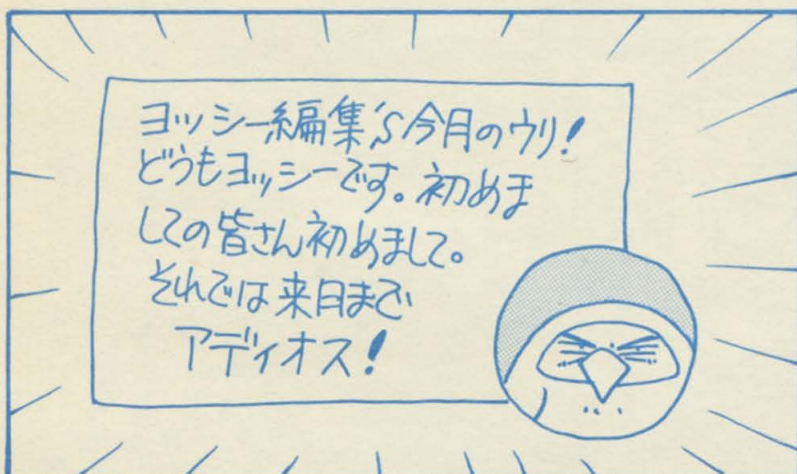 ヨッシー編集'S今月のウリ!
どうもヨッシーです。初めま
しての皆さん初めまして。
それでは来月まで
アディオス!